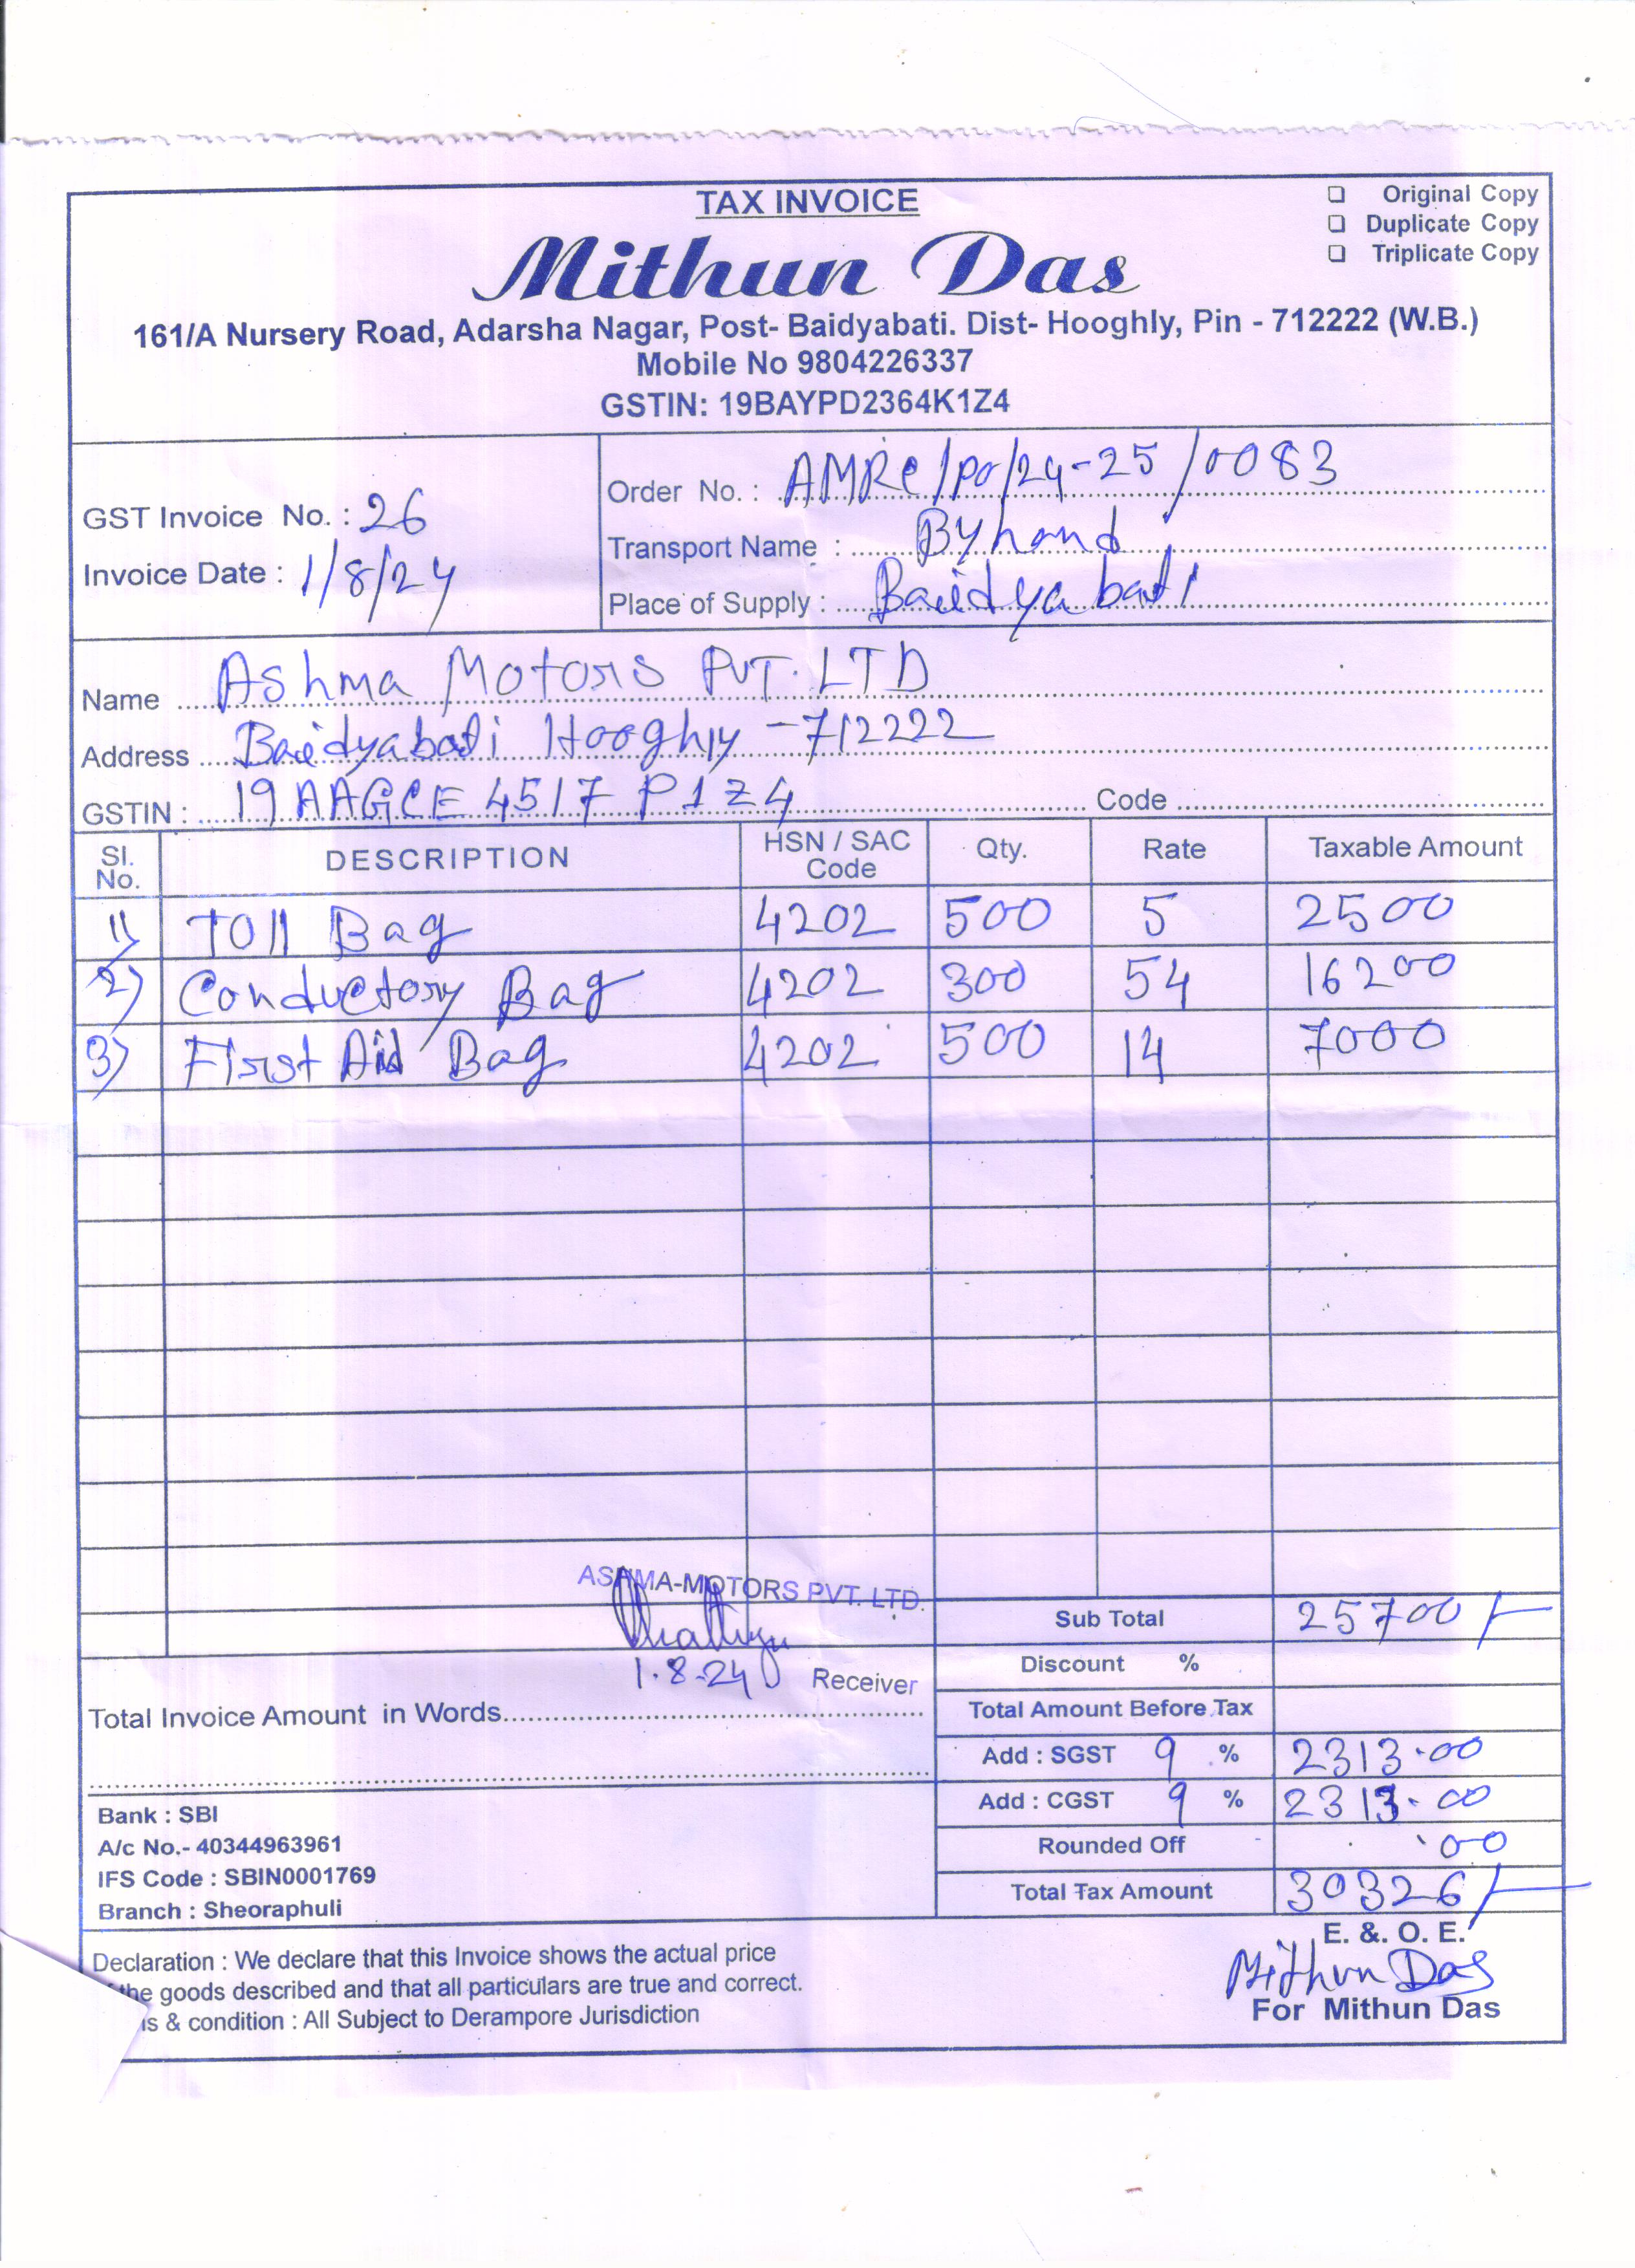 TAX INVOICE
Original Copy
Duplicate Copy
Triplicate Copy
Mithun Das
161/A Nursery Road, Adarsha Nagar, Post- Baidyabati. Dist- Hooghly, Pin - 712222 (W.B.)
Mobile No 9804226337
GSTIN: 19BAYPD2364K1Z4
GST Invoice No. : 26
Invoice Date : 1/8/24
Order No. : AMRC/PO/24-25/0083
Transport Name : By hand
Place of Supply : Baidyabati
Name Ashma Motors PVT. LTD
Address Baidyabati Hooghly - 712222
GSTIN : 19AAGCE4517P1Z4 Code
Sl. No. DESCRIPTION HSN / SAC Code Qty. Rate Taxable Amount
1) Toll Bag 4202 500 5 2500
2) Conductory Bag 4202 300 54 16200
3) First Aid Bag 4202 500 14 7000
ASHMA-MOTORS PVT. LTD.
1.8.24 Receiver
Total Invoice Amount in Words
Sub Total 25700/-
Discount %
Total Amount Before Tax
Add : SGST 9 % 2313.00
Add : CGST 9 % 2313.00
Rounded Off .00
Total Tax Amount 30326/-
Bank : SBI
A/c No.- 40344963961
IFS Code : SBIN0001769
Branch : Sheoraphuli
Declaration : We declare that this Invoice shows the actual price
the goods described and that all particulars are true and correct.
& condition : All Subject to Derampore Jurisdiction
E. &. O. E.
Mithun Das
For Mithun Das